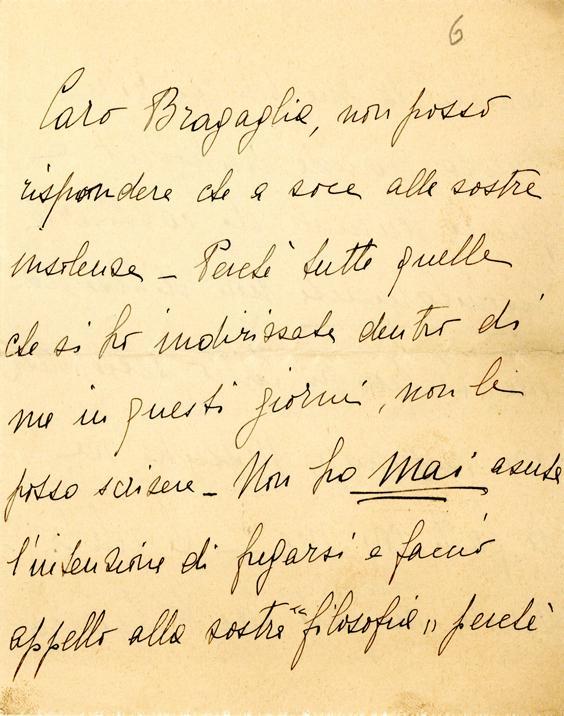 6
Caro Bragaglia, non posso
rispondere che a voce alle vostre
insolenze – Perchè tutte quelle
che vi ho indirizzate dentro di
me in questi giorni, non le
posso scrivere – Non ho mai avuta
l'intenzione di fregarvi e faccio
appello alla vostra "filosofia" perchè